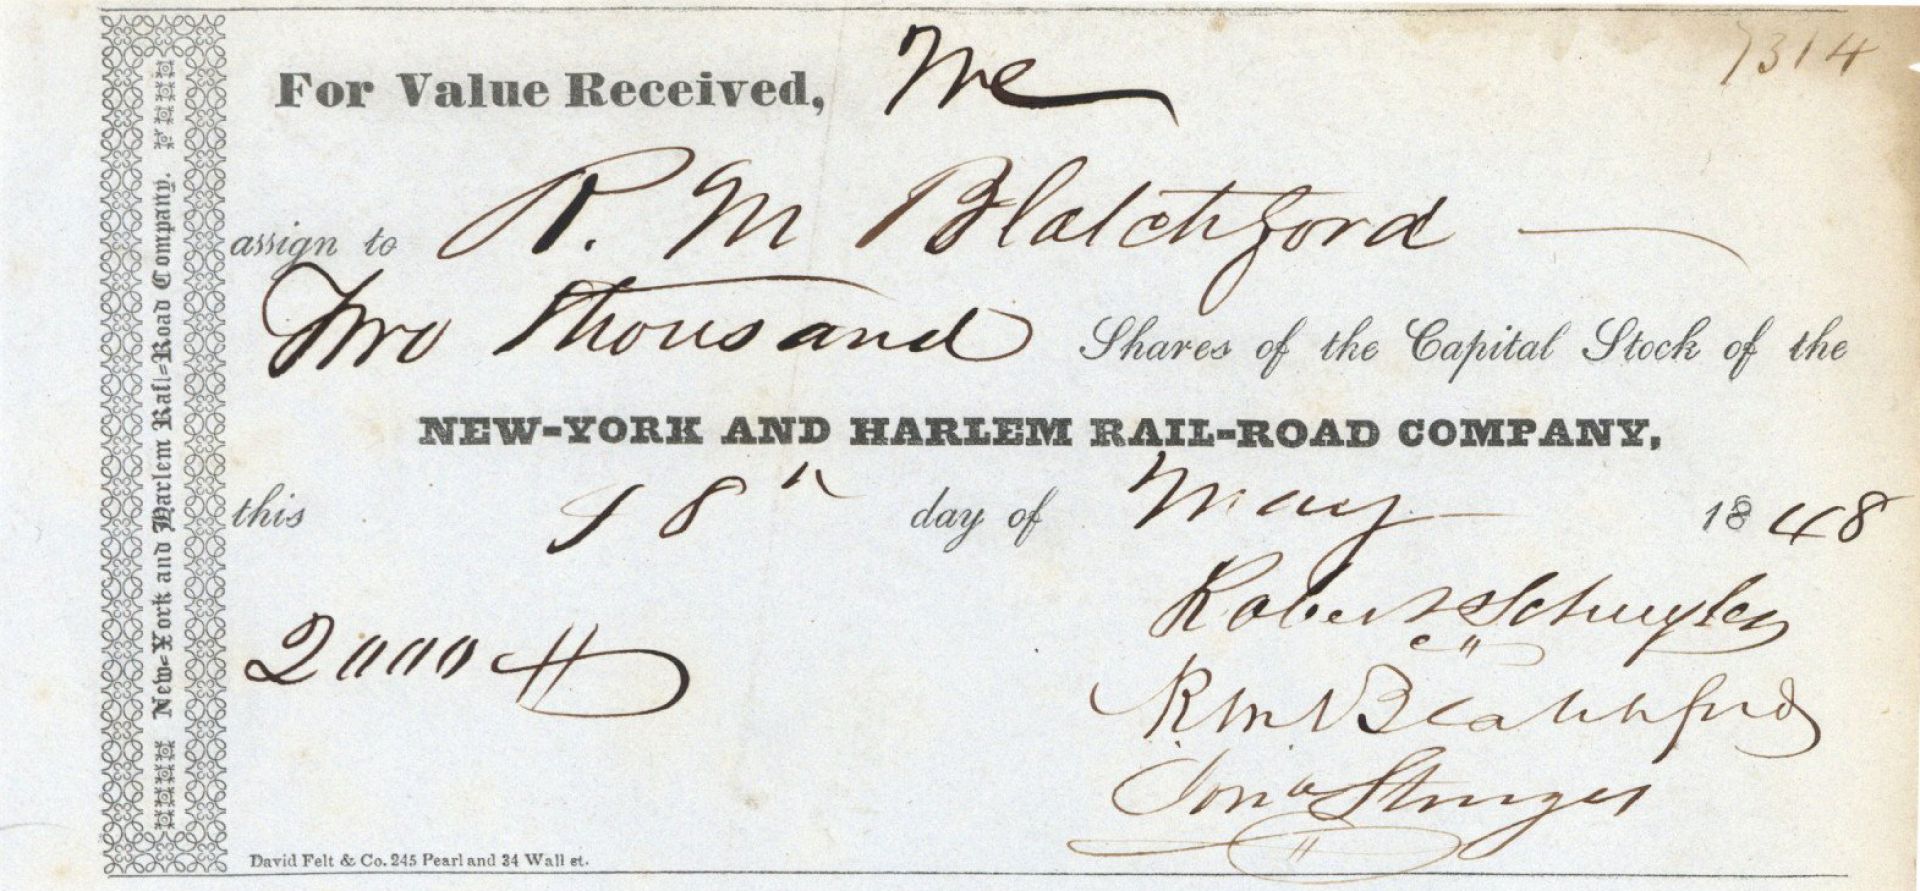 7314
For Value Received, We
assign to R. M Blatchford
Two Thousand Shares of the Capital Stock of the
NEW-YORK AND HARLEM RAIL-ROAD COMPANY,
this 18th day of May 1848
Robert Schuyler
2000
R M Blatchford
Jona Sturges
David Felt & Co. 245 Pearl and 34 Wall st.
New-York and Harlem Rail-Road Company.